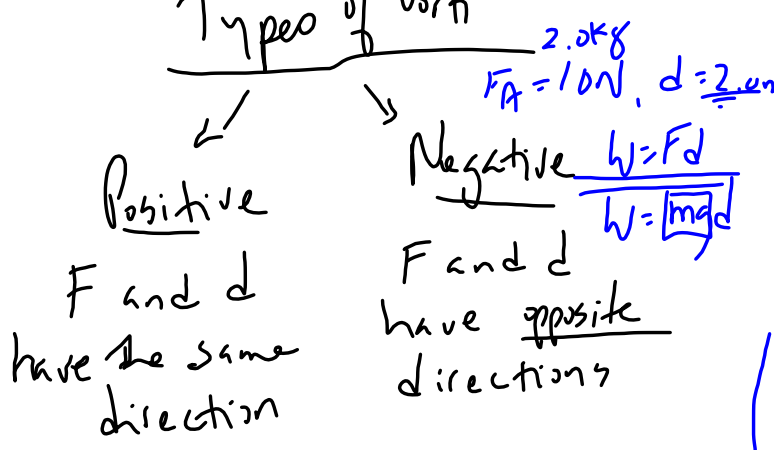 Types of
2.0kg
F_A = 10N, d = 2.0m
Positive
F and d
have the same
direction
Negative
F and d
have opposite
directions
W=Fd
W=mgd